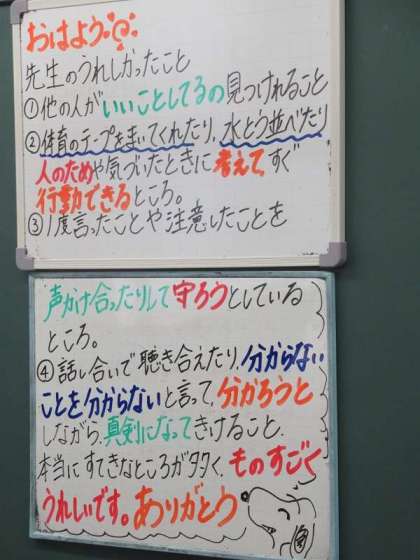 おはよう
先生のうれしかったこと
①他の人がいいことしてるの見つけれること
②体育のテープをまいてくれたり、水とう並べたり
人のためや気づいたときに考えて、すぐ
行動できるところ。
③1度言ったことや注意したことを
声かけ合ったりして守ろうとしている
ところ。
④話し合いで聴き合えたり、分からない
ことを分からないと言って、分かろうと
しながら、真剣になってきけること、
本当にすてきなところが多く、ものすごく
うれしいです。ありがとう